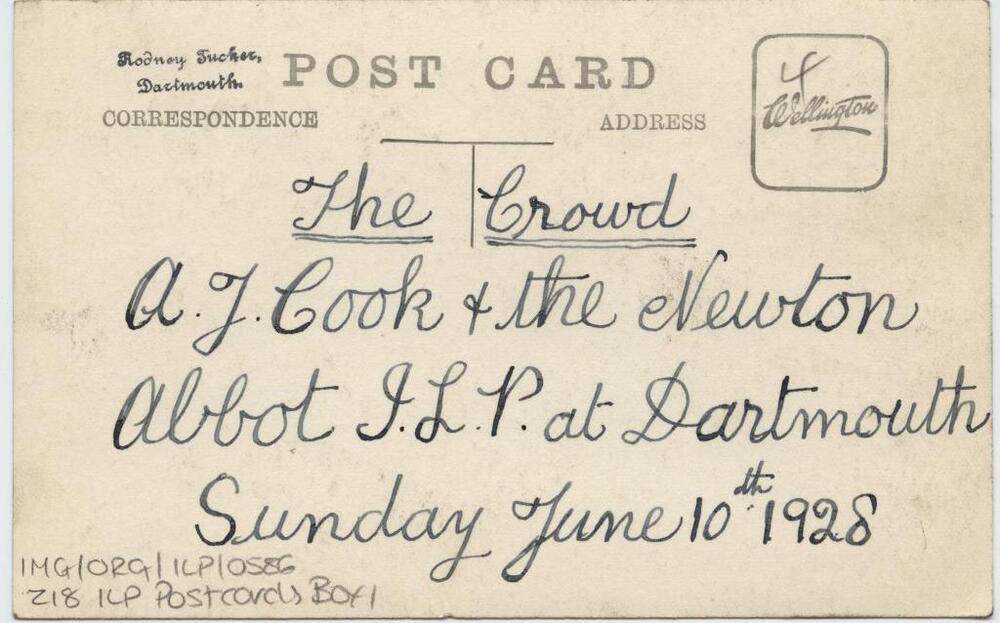 Rodney Tucker,
Dartmouth.
POST CARD
CORRESPONDENCE
ADDRESS
4
Wellington
The Crowd
A. J. Cook & the Newton
Abbot I.L.P. at Dartmouth
Sunday June 10th 1928
IMG/ORG/ILP/0586
Z18 ILP Postcards Box 1